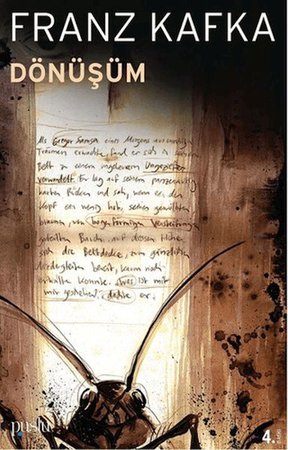 FRANZ KAFKA
DÖNÜŞÜM
Als Gregor Samsa eines Morgens aus unruhigen
Träumen erwachte, fand er sich in seinem
Bett zu einem ungeheueren Ungeziefer
verwandelt. Er lag auf seinem panzerartig
harten Rücken und sah, wenn er den
Kopf ein wenig hob, seinen gewölbten
braunen, von bogenförmigen Versteifungen
geteilten Bauch, auf dessen Höhe
sich die Bettdecke, zum gänzlichen
Niedergleiten bereit, kaum noch
erhalten konnte. Was ist mit
mir geschehen, dachte er.
puslu
4.